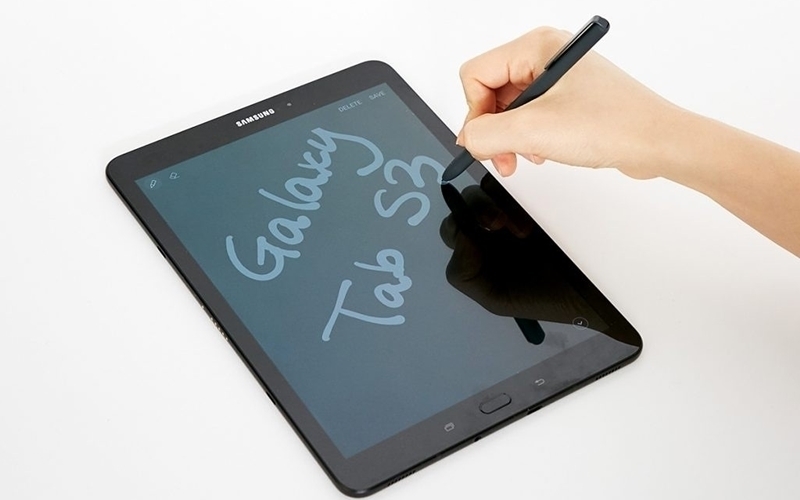 SAMSUNG
DELETE SAVE
Galaxy
Tab S3